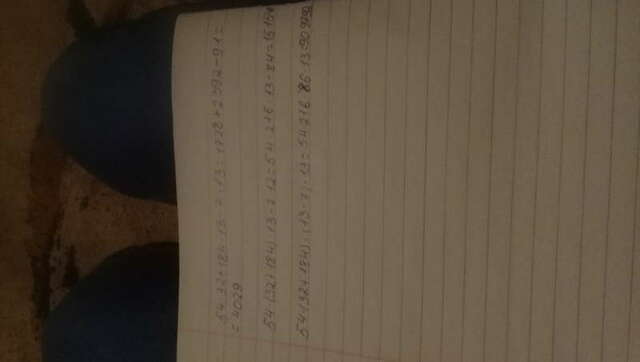 54·32+184·13-7·13=1728+2392-91=
=4029
54·(32+184)·13-7·12=54·216·13-84=1515
54·(32+184)·(13-7)·13=54·216·6·13=909792